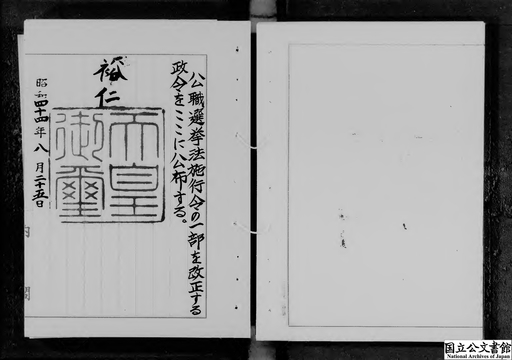 公職選挙法施行令の一部を改正する
政令をここに公布する。
裕仁
天皇御璽
昭和四十四年八月二十五日
内閣
国立公文書館
National Archives of Japan